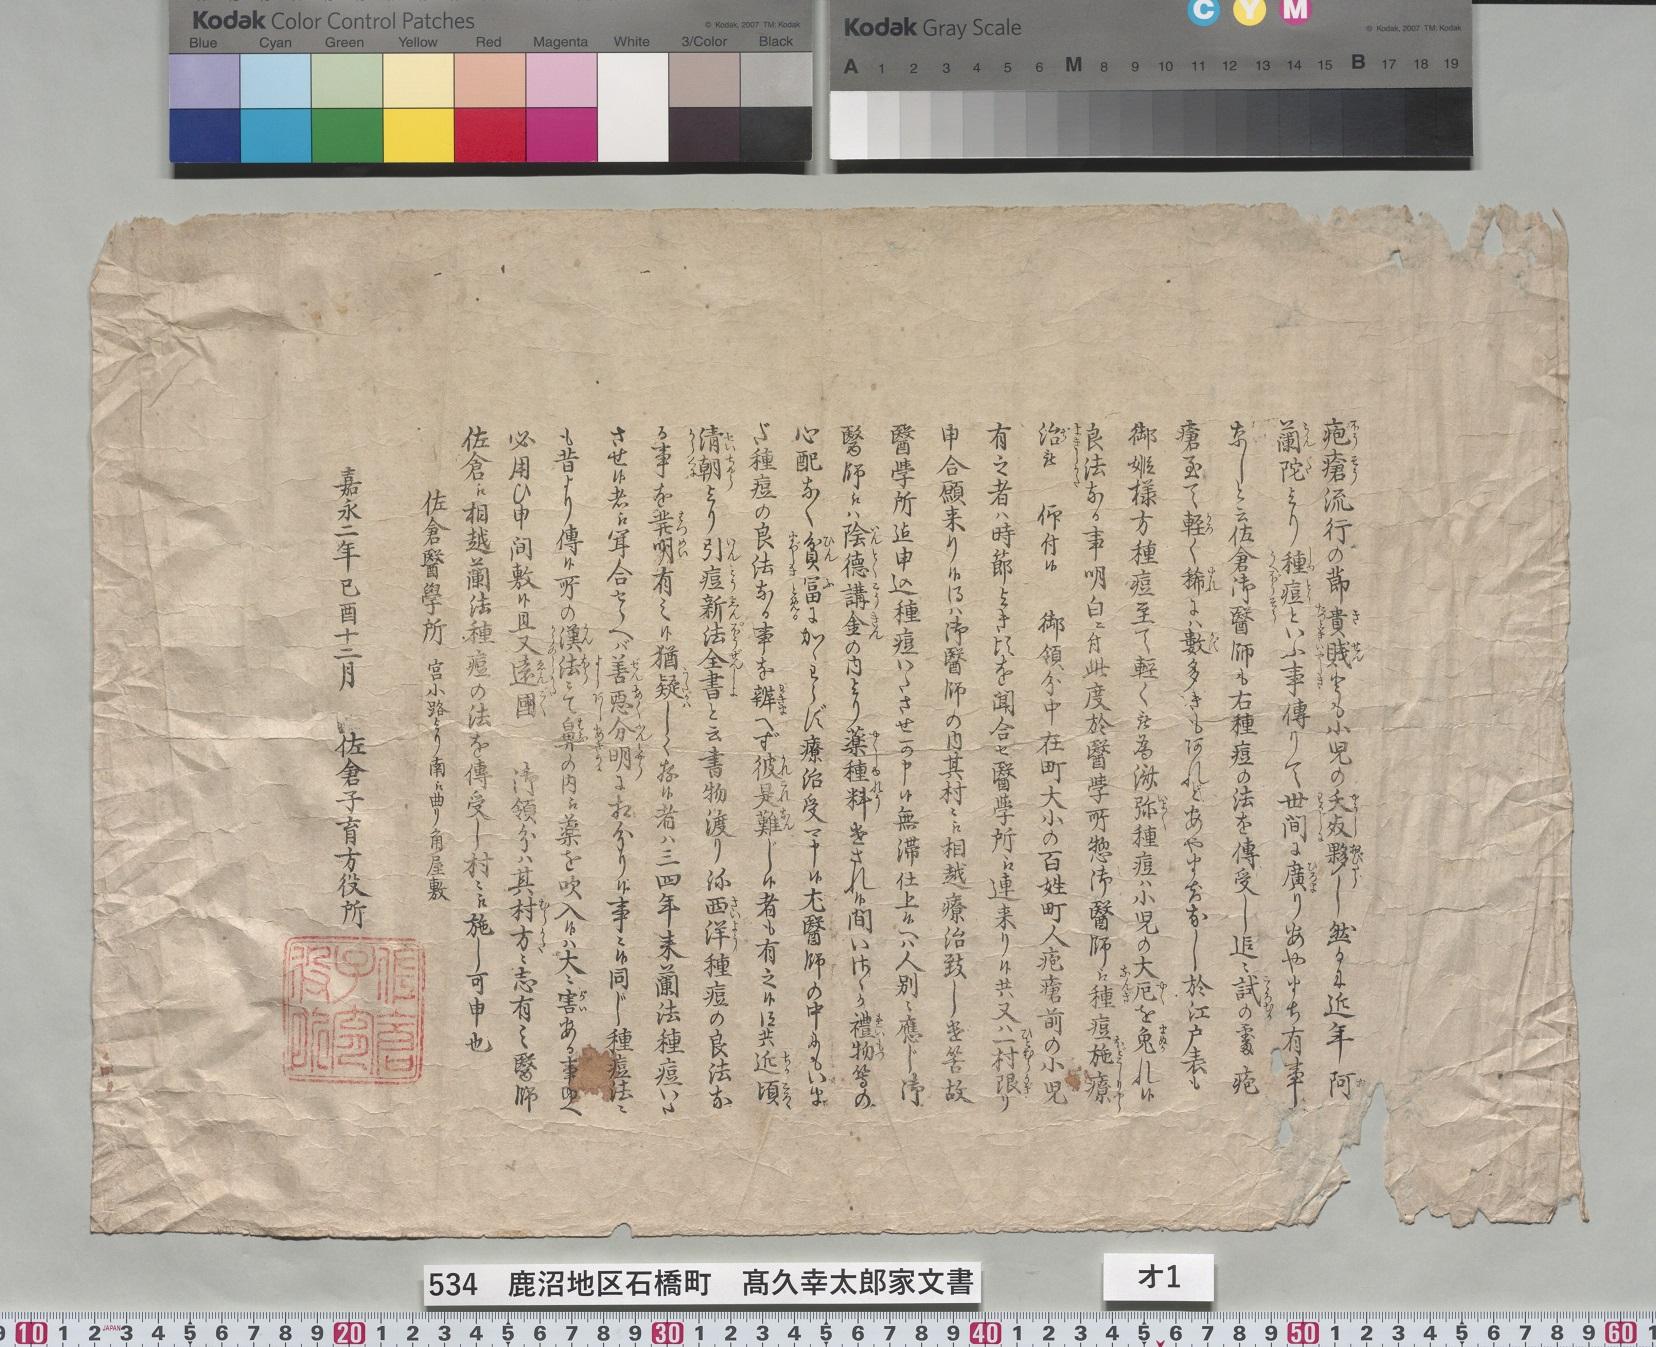 Kodak Color Control Patches
© Kodak, 2007 TM: Kodak
Blue Cyan Green Yellow Red Magenta White 3/Color Black
Kodak Gray Scale
C Y M
© Kodak, 2007 TM: Kodak
A 1 2 3 4 5 6 M 8 9 10 11 12 13 14 15 B 17 18 19
疱瘡流行の節貴賤とも小児の夭夥し然るに近年阿
蘭陀より種痘といふ事傳りて世間に廣りあやまち有事
なしと云佐倉御醫師も右種痘の法を傳受し追々試の處疱
瘡至て軽く稀には數多きも何れどあやまちなし於江戸表も
御姫様方種痘至て軽く被為済弥種痘ハ小児の大厄を免れ候
良法なる事明白ニ付此度於醫學所惣御醫師江種痘施療
治被 仰付候 御領分中在町大小の百姓町人疱瘡前の小児
有之者ハ時節よき頃を聞合せ醫學所江連来り候共又ハ一村限り
申合願来り候得ハ御醫師の内其村々江相越療治致し遣筈故
醫學所迄申込種痘いたさせ可申候無滞仕上候へハ人別ニ應じ御
醫師江ハ陰德講金の内より薬種料遣され候間いさゝか禮物等の
心配なく貧冨にかゝわらず療治受可申候尤醫師の中にもいま
だ種痘の良法なる事を辨へず彼是難じ候者も有之候得共近頃
清朝より引痘新法全書と云書物渡り弥西洋種痘の良法な
る事を発明有之候猶疑しく存候者ハ三四年来蘭法種痘いた
させ候者江聞合せらへバ善悪分明に相分り候事ニ候同じ種痘法ニ
も昔より傳候所の漢法にて鼻の内江薬を吹入候ハ大ニ害ある事ゆへ
必用ひ申間敷候且又遠國 御領分ハ其村方ニ志有之醫師
佐倉江相越蘭法種痘の法を傳受し村々江施し可申也
佐倉醫學所 宮小路より南江曲り角屋敷
嘉永二年己酉十二月 佐倉子育方役所
534 鹿沼地区石橋町 髙久幸太郎家文書
オ1
9 10 1 2 3 4 5 6 7 8 9 20 1 2 3 4 5 6 7 8 9 30 1 2 3 4 5 6 7 8 9 40 1 2 3 4 5 6 7 8 9 50 1 2 3 4 5 6 7 8 9 60
JAPAN